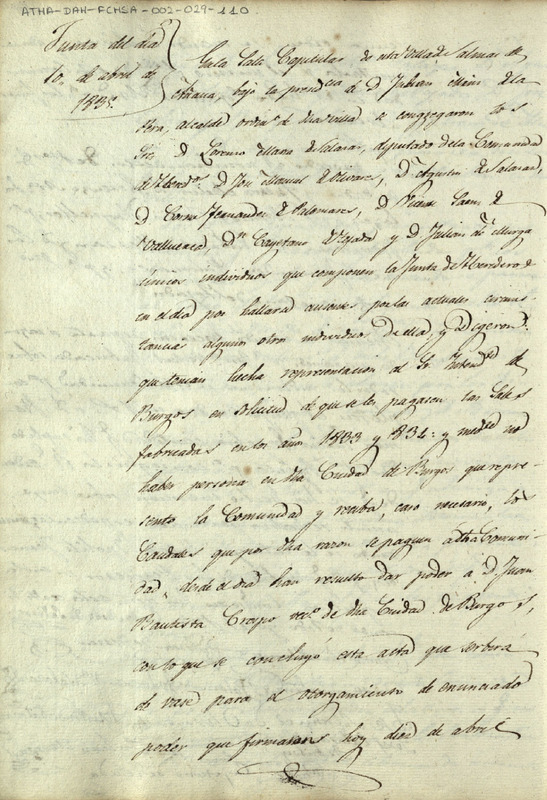 ATHA-DAH-FCHSA-002-029-110
Junta del dia
10, de abril de
1835.
En la Sala Capitular de ntra villa de Salinas de
Añana, bajo la presid.cia de D. Julian de la
Pera, alcalde ordin.o de dha villa se congregaron los
D. Lorenzo Maria de Salazar, diputado de la Comunidad
de Hered.s D. José Manuel de Olivares, D. Agustin de Salazar,
D. Cosme Fernandez de Palomares, D. Saenz de
D.n Cayetano y D. Julian de Murga
únicos individuos que componen la Junta de Herederos
en el dia por hallarse ausentes por las actuales circuns
tancias algunos otros individuos de ella, y Digeron:
que tenian hecha representacion al Sr. Intend.te de
Burgos en solicitud de que se les pagasen las Sales
fabricadas en los años 1833 y 1834: y no
haber persona en dha Ciudad de Burgos que repre-
sente la Comunidad y reciba, caso necesario, los
Caudales que por dha razon se paguen a dha Comuni-
dad, desde el dia han resuelto dar poder a D. Juan
Bautista Crespo vec.o de dha Ciudad de Burgos,
con lo que se concluyó esta acta que serbirá
de vase para el otorgamiento de enunciado
poder que firmaron hoy diez de abril